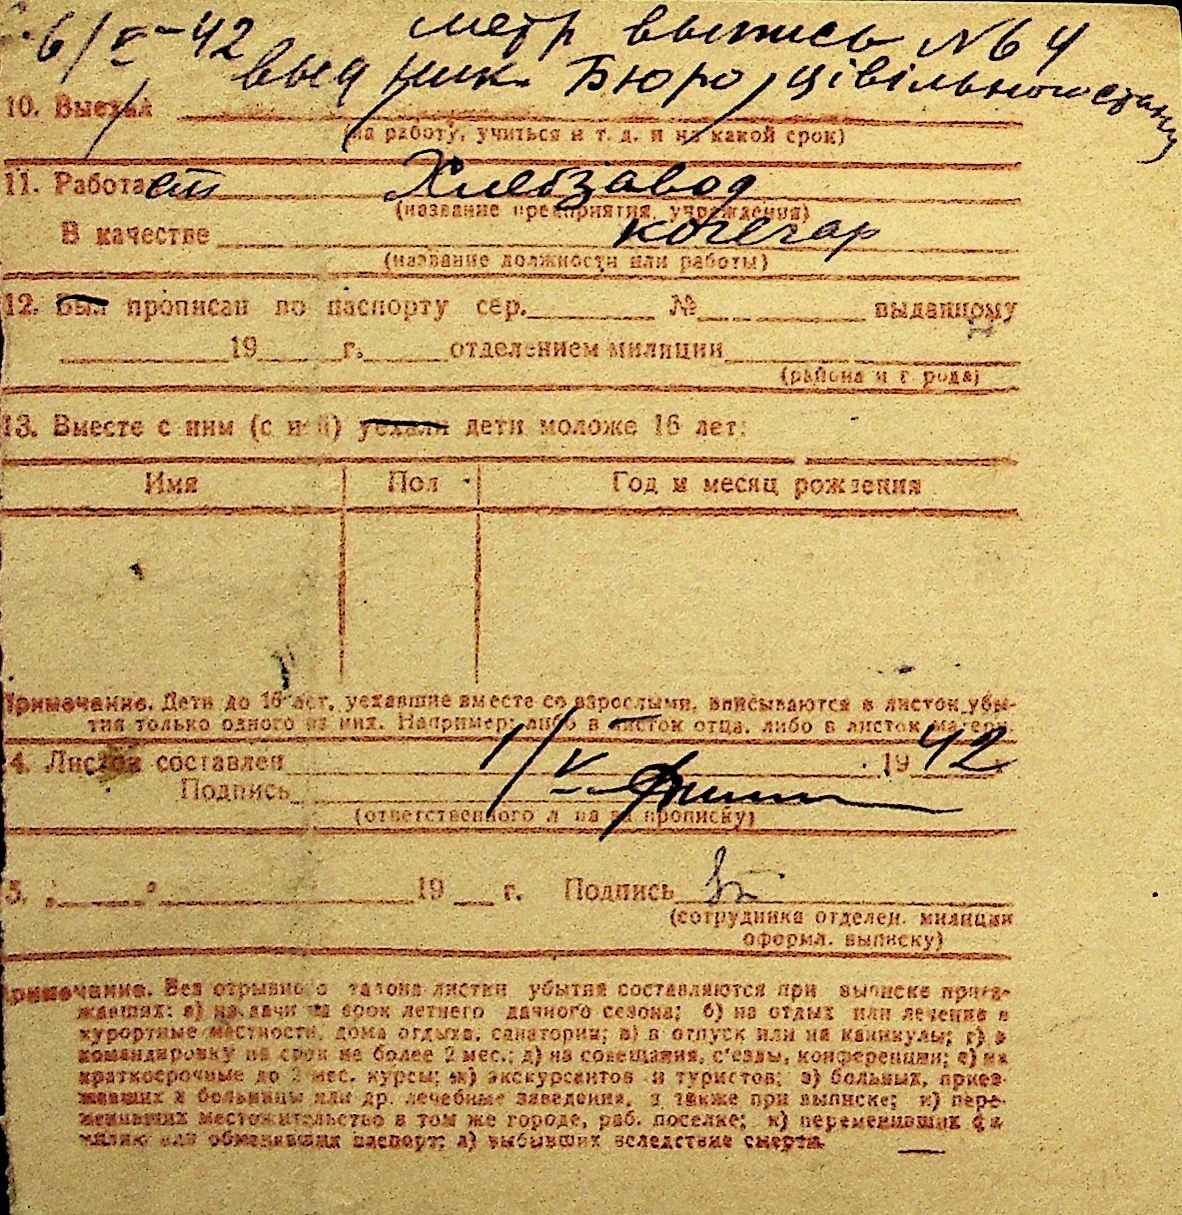 6/V-42 метр выпись №64
выд Ник. Бюро цівільного стану
10. Выехал
(на работу, учиться и т. д. и на какой срок)
11. Работает Хлебзавод
(название предприятия, учреждения)
В качестве кочегар
(название должности или работы)
12. Был прописан по паспорту сер. № выданному
19 г. отделением милиции
(района и города)
13. Вместе с ним (с ней) уехали дети моложе 16 лет:
Имя Пол Год и месяц рождения
Примечание. Дети до 16 лет, уехавшие вместе со взрослыми, вписываются в листок убы-
тия только одного из них. Например: либо в листок отца, либо в листок матери.
4. Листок составлен 1/V 1942
Подпись
(ответственного л на за прописку)
5. " " 19 г. Подпись
(сотрудника отделен. милиции
оформл. выписку)
Примечание. Без отрывного талона листки убытия составляются при выписке приез-
жавших: а) на дачи на срок летнего дачного сезона; б) на отдых или лечение в
курортные местности, дома отдыха, санатории; в) в отпуск или на каникулы; г) в
командировку на срок не более 2 мес.; д) на совещания, с'езды, конференции; е) на
краткосрочные до 2 мес. курсы; ж) экскурсантов и туристов; з) больных, приез-
жавших в больницы или др. лечебные заведения, а также при выписке; и) пере-
менивших местожительство в том же городе, раб. поселке; к) переменивших фа-
милию или обменявших паспорт; л) выбывших вследствие смерти.